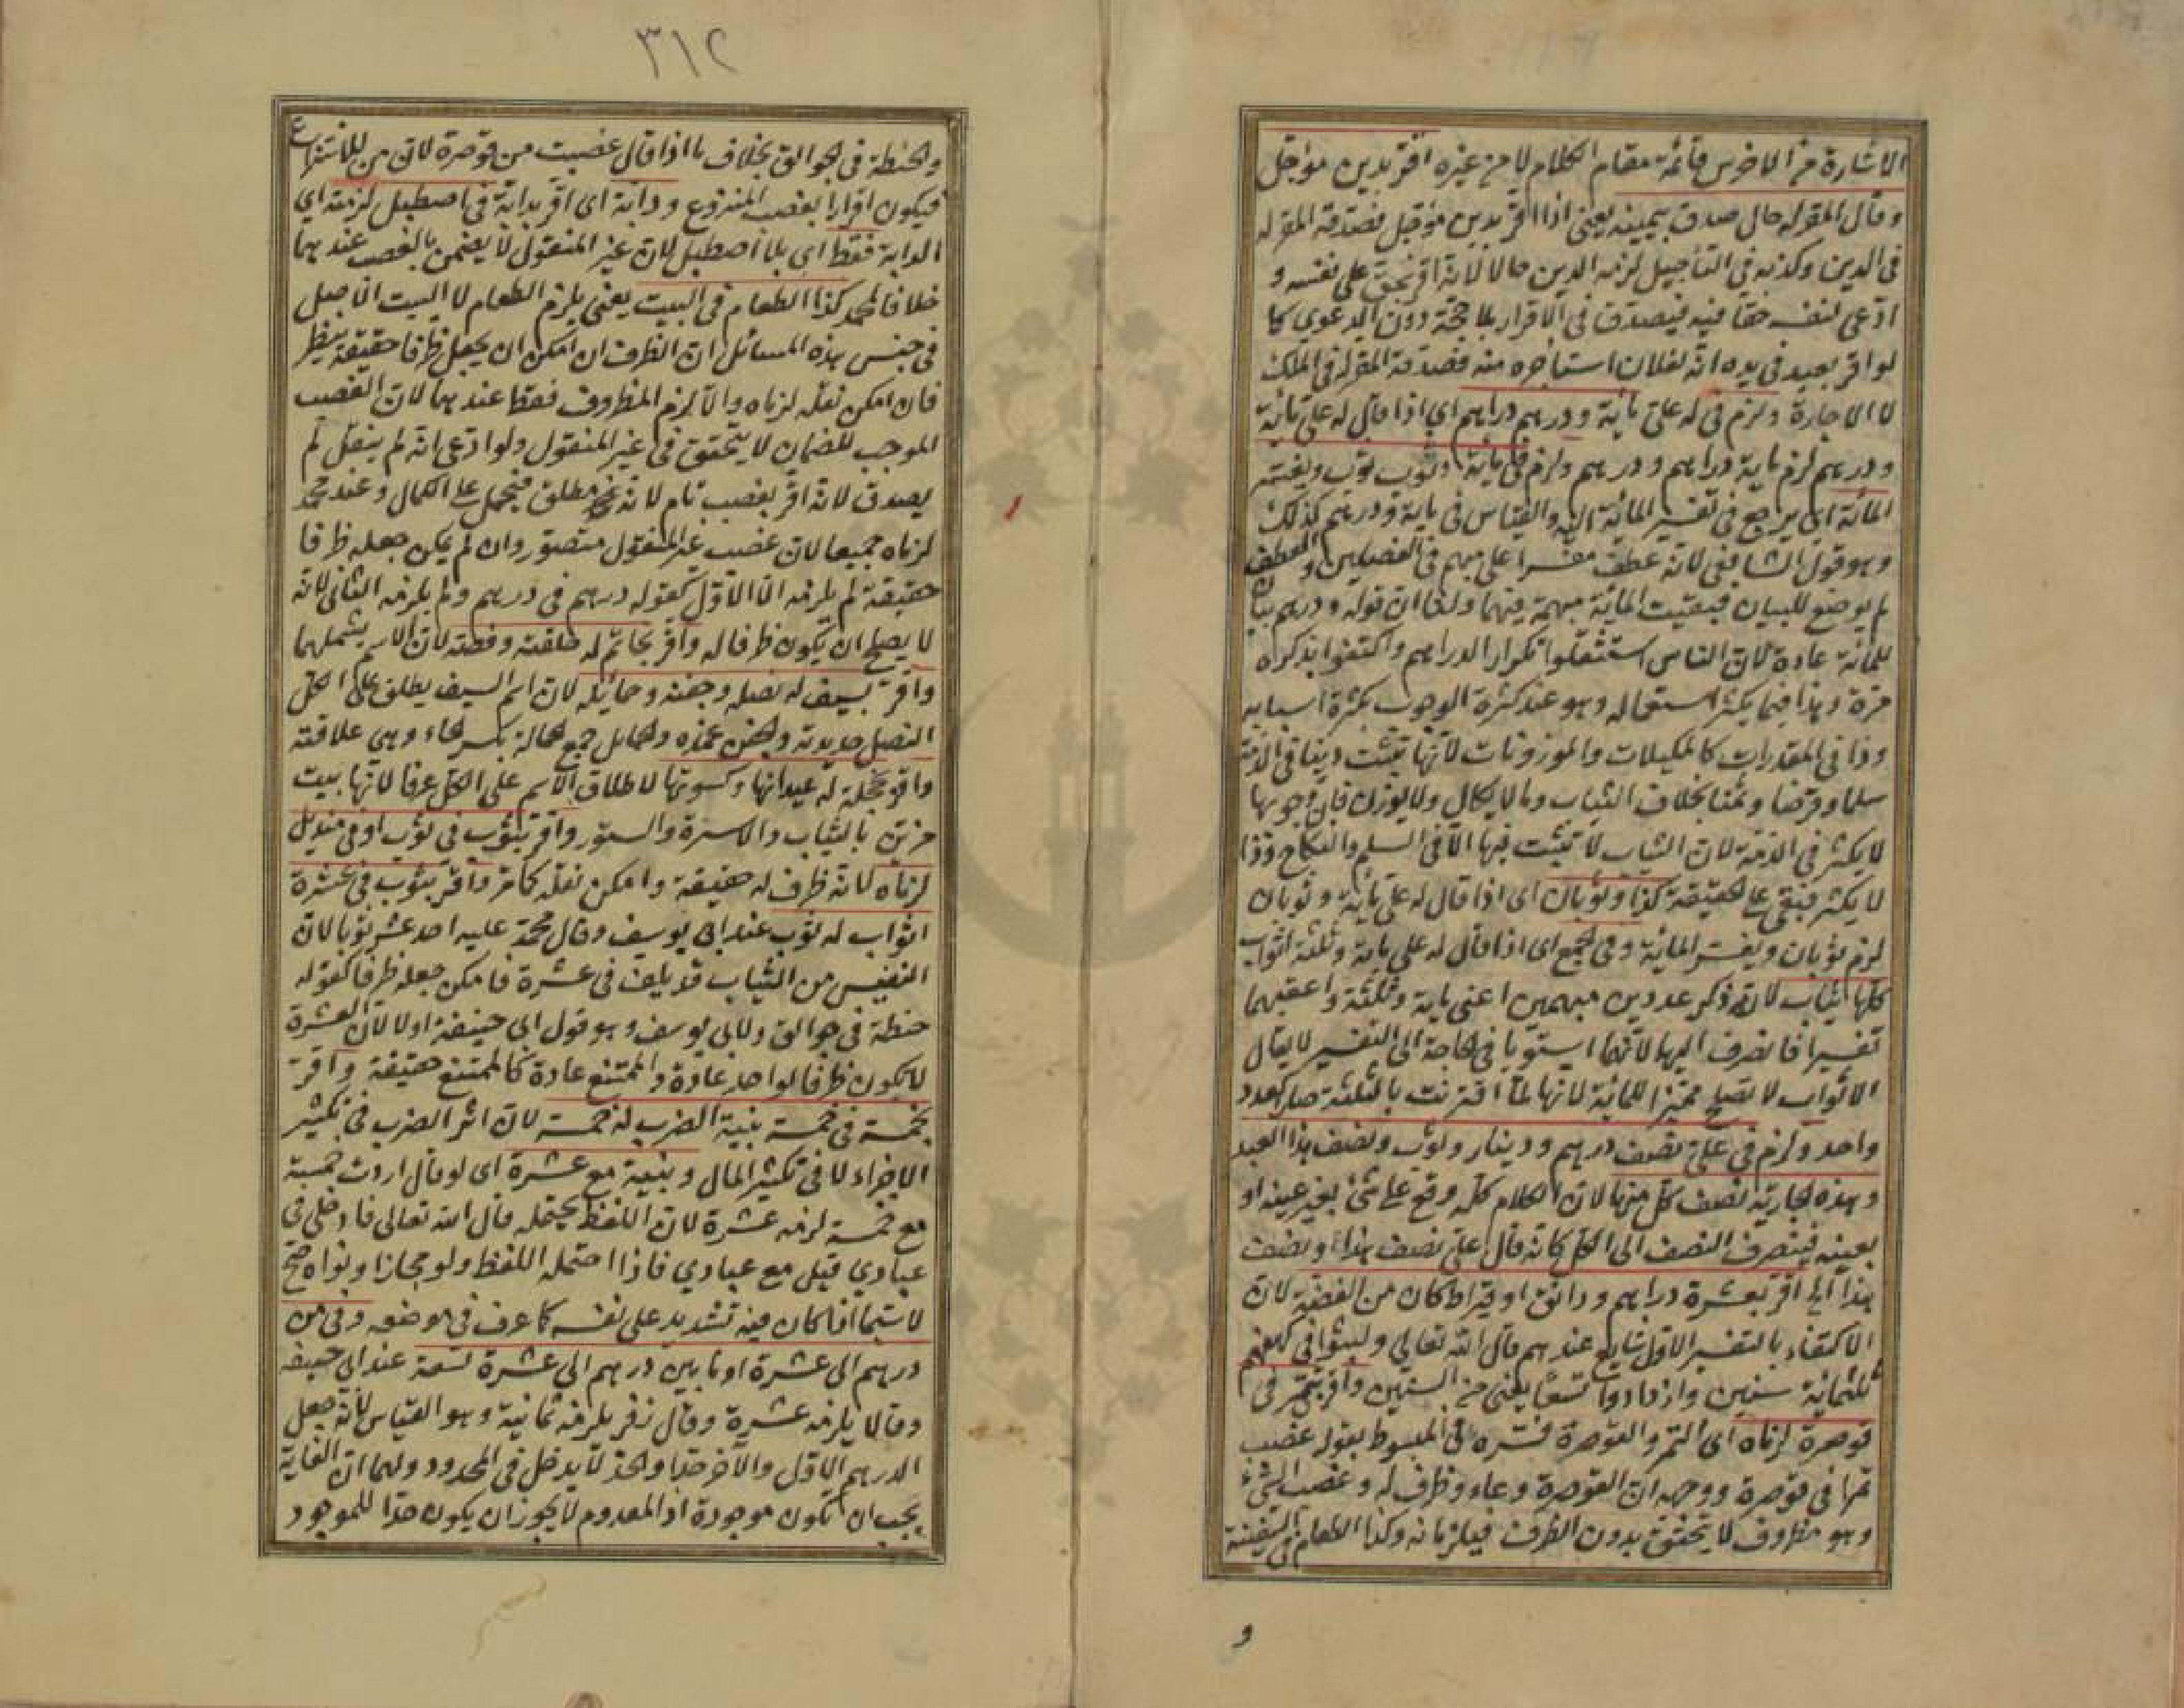 الاشارة من الاخرس قائمة مقام الكلام لا من غيره اقر بدين مؤجل
وقال المقر له حال صدق بيمينه يعني اذا اقر بدين مؤجل فصدقه المقر له
في الدين وكذبه في التأجيل لزمه الدين حالا لانه اقر بحق على نفسه و
ادعى لنفسه حقا فيه فيصدق في الاقرار بلا حجة دون الدعوي كما
لو اقر بعبد في يده انه لفلان استأجره منه فصدقه المقر له في الملك
لا الاجارة ولزم في له علي مائة ودرهم دراهم اي اذا قال له علي مائة
ودرهم لزم مائة دراهم ودرهم ولزم في مائة وثوب ثوب ويفسر
المائة اي يرجع في تفسير المائة اليه والقياس في مائة ودرهم كذلك
وهو قول الشافعي لانه عطف مفسرا على مبهم في الفصلين والعطف
لم يوضع للبيان فبقيت المائة مبهمة فيهما ولنا ان قوله ودرهم بيان
للمائة عادة لان الناس استثقلوا تكرار الدراهم واكتفوا بذكره
مرة وهذا فيما يكثر استعماله وهو عند كثرة الوجوب بكثرة اسبابه
وذا في المقدرات كالمكيلات والموزونات لانها تثبت دينا في الذمة
سلما وقرضا وثمنا بخلاف الثياب وما لا يكال ولا يوزن فان وجوبها
لا يكثر في الذمة لان الثياب لا تثبت فيها الا في السلم والنكاح وذا
لا يكثر فبقي على الحقيقة كذا وثوبان اي اذا قال له علي مائة وثوبان
لزم ثوبان ويفسر المائة وفي الجمع اي اذا قال له علي مائة وثلثة اثواب
كلها ثياب لانه ذكر عددين مبهمين اعني مائة وثلثة واعقبهما
تفسيرا فانصرف اليهما لانهما استويا في الحاجة الى التفسير لا يقال
الاثواب لا تصلح مميزا للمائة لانها لما اقترنت بالثلثة صار كعدد
واحد ولزم في علي نصف درهم ودينار وثوب ونصف هذا العبد
وهذه الجارية نصف كل منها لان الكلام كله وقع على شئ بغير عينه او
بعينه فينصرف النصف الى الكل كانه قال علي نصف هذا ونصف
هذا الخ اقر بعشرة دراهم ودانق او قيراط كان من الفضة لان
الاكتفاء بالتفسير الاول شايع عندهم قال الله تعالى ولبثوا في كهفهم
ثلثمائة سنين وازدادوا تسعا يعني من السنين واقر بتمر في
قوصرة لزماه اي التمر والقوصرة فسره في المبسوط بقوله غصب
تمرا في قوصرة ووجهه ان القوصرة وعاء وظرف له وغصب الشئ
وهو مظروف لا يتحقق بدون الظرف فيلزمانه وكذا الطعام في السفينة
و
٣١٢
والحنطة في الجوالق بخلاف ما اذا قال غصبت من قوصرة لان من للانتزاع
فيكون اقرارا بغصب المنزوع ودابة اي اقر بدابة في اصطبل لزمته اي
الدابة فقط اي بلا اصطبل لان غير المنقول لا يضمن بالغصب عندهما
خلافا لمحمد كذا الطعام في البيت يعني يلزم الطعام لا البيت الاصل
في جنس هذه المسائل ان الظرف ان امكن ان يجعل ظرفا حقيقة ينظر
فان امكن نقله لزماه والا لزم المظروف فقط عندهما لان الغصب
الموجب للضمان لا يتحقق في غير المنقول ولو ادعى انه لم ينقل لم
يصدق لانه اقر بغصب تام لانه مطلق فيحمل على الكمال وعند محمد
لزماه جميعا لان غصب غير المنقول متصور وان لم يمكن جعله ظرفا
حقيقة لم يلزمه الا الاول كقوله درهم في درهم ولم يلزمه الثاني لانه
لا يصلح ان يكون ظرفا له واقر بخاتم له حلقته وفصه لان الاسم يشملهما
واقر بسيف له نصله وجفنه وحمائله لان اسم السيف يطلق على الكل
النصل حديدته والجفن غمده والحمايل جمع حمالة بكسر الحاء وهي علاقته
واقر بحجلة له عيدانها وكسوتها لاطلاق الاسم على الكل عرفا لانها بيت
مزين بالثياب والاسرة والستور واقر بثوب في ثوب او في منديل
لزماه لانه ظرف له حقيقة وامكن نقله كما مر واقر بثوب في عشرة
اثواب له ثوب عند ابي يوسف وقال محمد عليه احد عشر ثوبا لان
النفيس من الثياب قد يلف في عشرة فامكن جعله ظرفا كقوله
حنطة في جوالق ولابي يوسف وهو قول ابي حنيفة اولا لان العشرة
لا يكون ظرفا لواحد عادة والممتنع عادة كالممتنع حقيقة واقر
بخمسة في خمسة بنية الضرب له خمسة لان اثر الضرب في تكثير
الاجزاء لا في تكثير المال وبنية مع عشرة اي لو قال اردت خمسة
مع خمسة لزمه عشرة لان اللفظ يحتمله قال الله تعالى فادخلي في
عبادي قيل مع عبادي فاذا احتمله اللفظ ولو مجازا ونواه صح
لا سيما اذا كان فيه تشديد على نفسه كما عرف في موضعه وفي من
درهم الى عشرة او ما بين درهم الى عشرة تسعة عند ابي حنيفة
وقالا يلزمه عشرة وقال زفر يلزمه ثمانية وهو القياس لانه جعل
الدرهم الاول والآخر حدا والحد لا يدخل في المحدود ولهما ان الغاية
يجب ان تكون موجودة اذ المعدوم لا يجوز ان يكون حدا للموجود